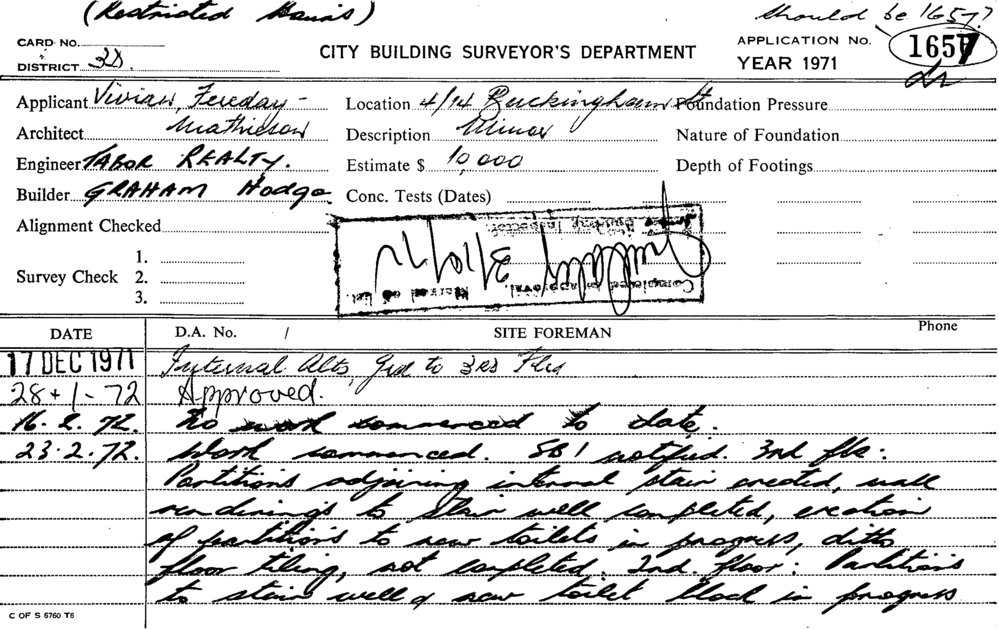 (Restricted Hours)
should be 1657?
CARD No.
DISTRICT 38
CITY BUILDING SURVEYOR'S DEPARTMENT
APPLICATION No. 1657
YEAR 1971
Applicant Vivian, Fereday-
Location 4/14 Buckingham St
Foundation Pressure
Architect Mathieson
Description Minor
Nature of Foundation
Engineer TABOR REALTY.
Estimate $ 10,000
Depth of Footings
Builder GRAHAM Hodge
Conc. Tests (Dates)
Alignment Checked
Survey Check 1.
2.
3.
Completed as approved
3/10/72
DATE
D.A. No. /
SITE FOREMAN
Phone
17 DEC 1971 Internal Alts, Grd to 3rd Flrs
28-1-72 Approved.
16.2.72. No work commenced to date.
23.2.72. Work commenced. SBI notified. 3rd flr:
Partitions adjoining internal stair erected, wall
renderings to stair well completed, erection
of partitions to new toilets in progress, ditto
floor tiling, not completed. 2nd. floor: Partitions
to stair well & new toilet block in progress
C OF S 6760 T6